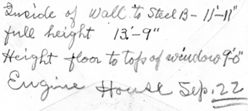 Inside of Wall to Steel B - 11'-11"
full height 13'-9"
Height floor to top of window 9'-0"
Engine House Sep. 22